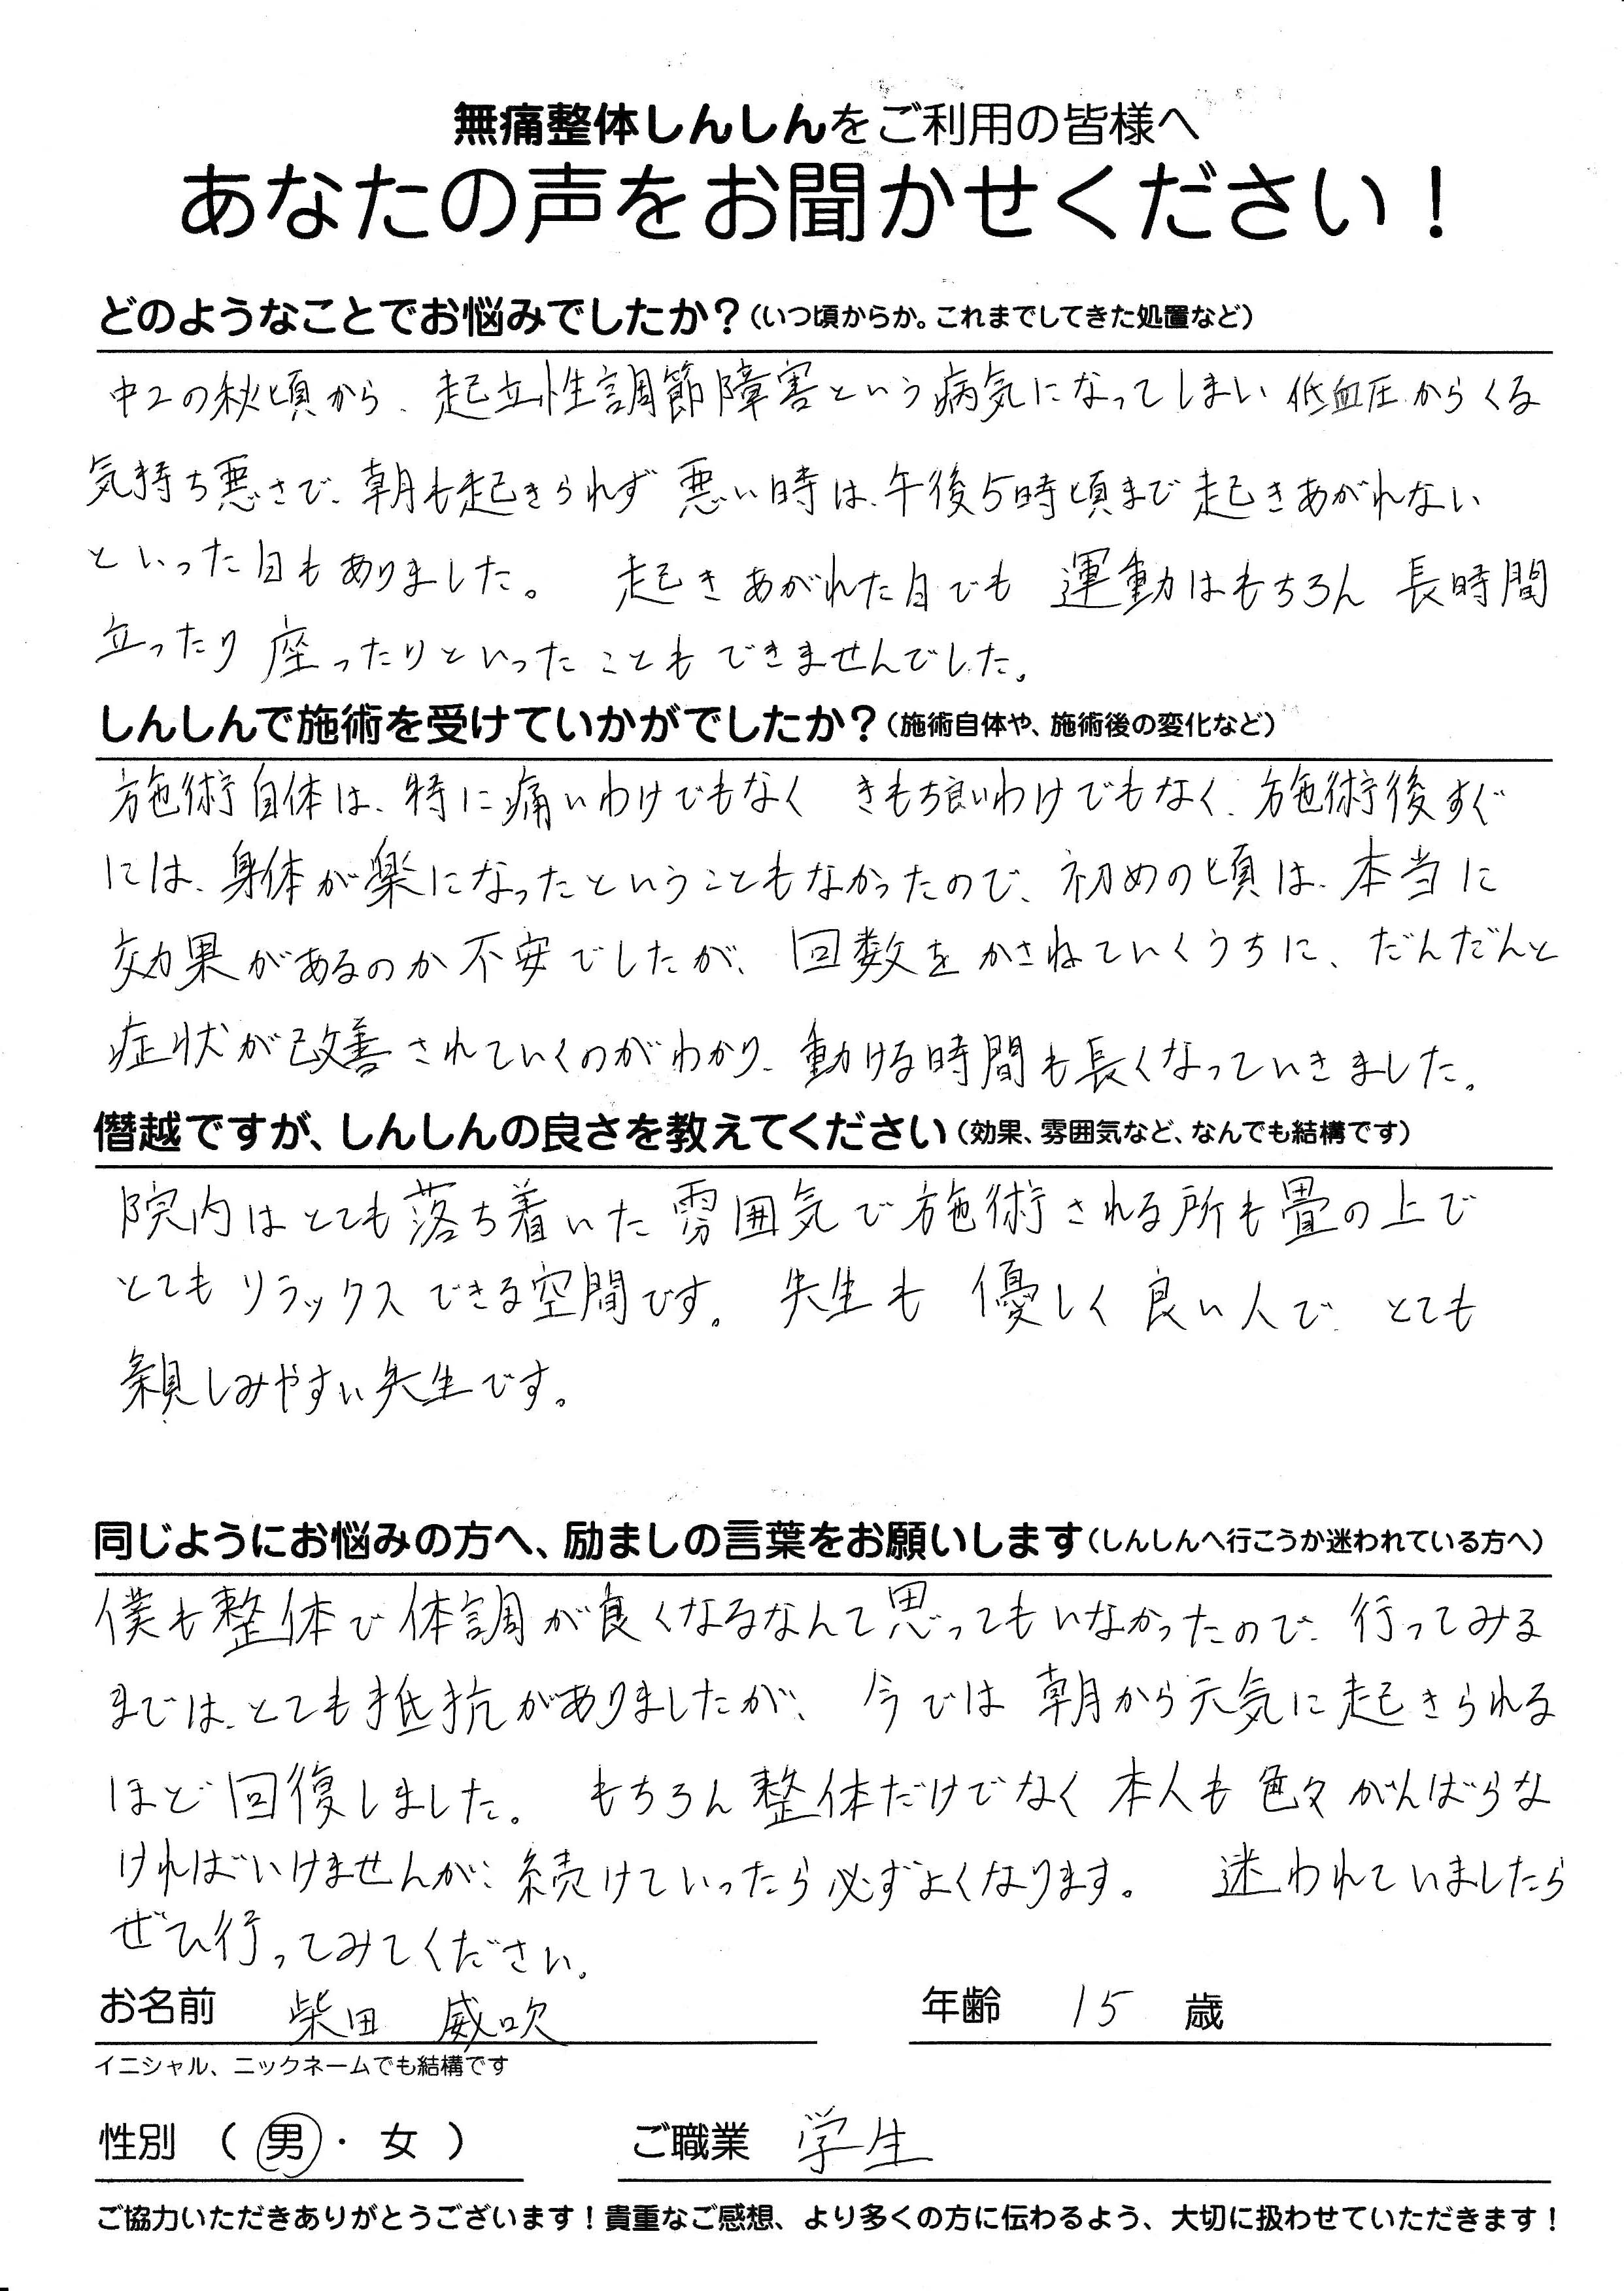 無痛整体しんしんをご利用の皆様へ
あなたの声をお聞かせください！
どのようなことでお悩みでしたか？（いつ頃からか。これまでしてきた処置など）
中2の秋頃から、起立性調節障害という病気になってしまい 低血圧からくる
気持ち悪さで、朝も起きられず 悪い時は、午後5時頃まで起きあがれない
といった日もありました。 起きあがれた日でも 運動はもちろん 長時間
立ったり 座ったりといったこともできませんでした。
しんしんで施術を受けていかがでしたか？（施術自体や、施術後の変化など）
施術自体は、特に痛いわけでもなく きもち良いわけでもなく、施術後すぐ
には、身体が楽になったということもなかったので、初めの頃は、本当に
効果があるのか不安でしたが、回数をかさねていくうちに、だんだんと
症状が改善されていくのがわかり、動ける時間も長くなっていきました。
僭越ですが、しんしんの良さを教えてください（効果、雰囲気など、なんでも結構です）
院内はとても落ち着いた雰囲気で施術される所も畳の上で
とてもリラックスできる空間です。 先生も 優しく良い人で、とても
親しみやすい先生です。
同じようにお悩みの方へ、励ましの言葉をお願いします（しんしんへ行こうか迷われている方へ）
僕も整体で体調が良くなるなんて思ってもいなかったので、行ってみる
までは、とても抵抗がありましたが、 今では朝から元気に起きられる
ほど回復しました。 もちろん整体だけでなく本人も色々がんばらな
ければいけませんが、続けていったら必ずよくなります。 迷われていましたら
ぜひ行ってみてください。
お名前 柴田 威吹
年齢 15 歳
イニシャル、ニックネームでも結構です
性別 （ 男 ・ 女 ）
ご職業 学生
ご協力いただきありがとうございます！貴重なご感想、より多くの方に伝わるよう、大切に扱わせていただきます！